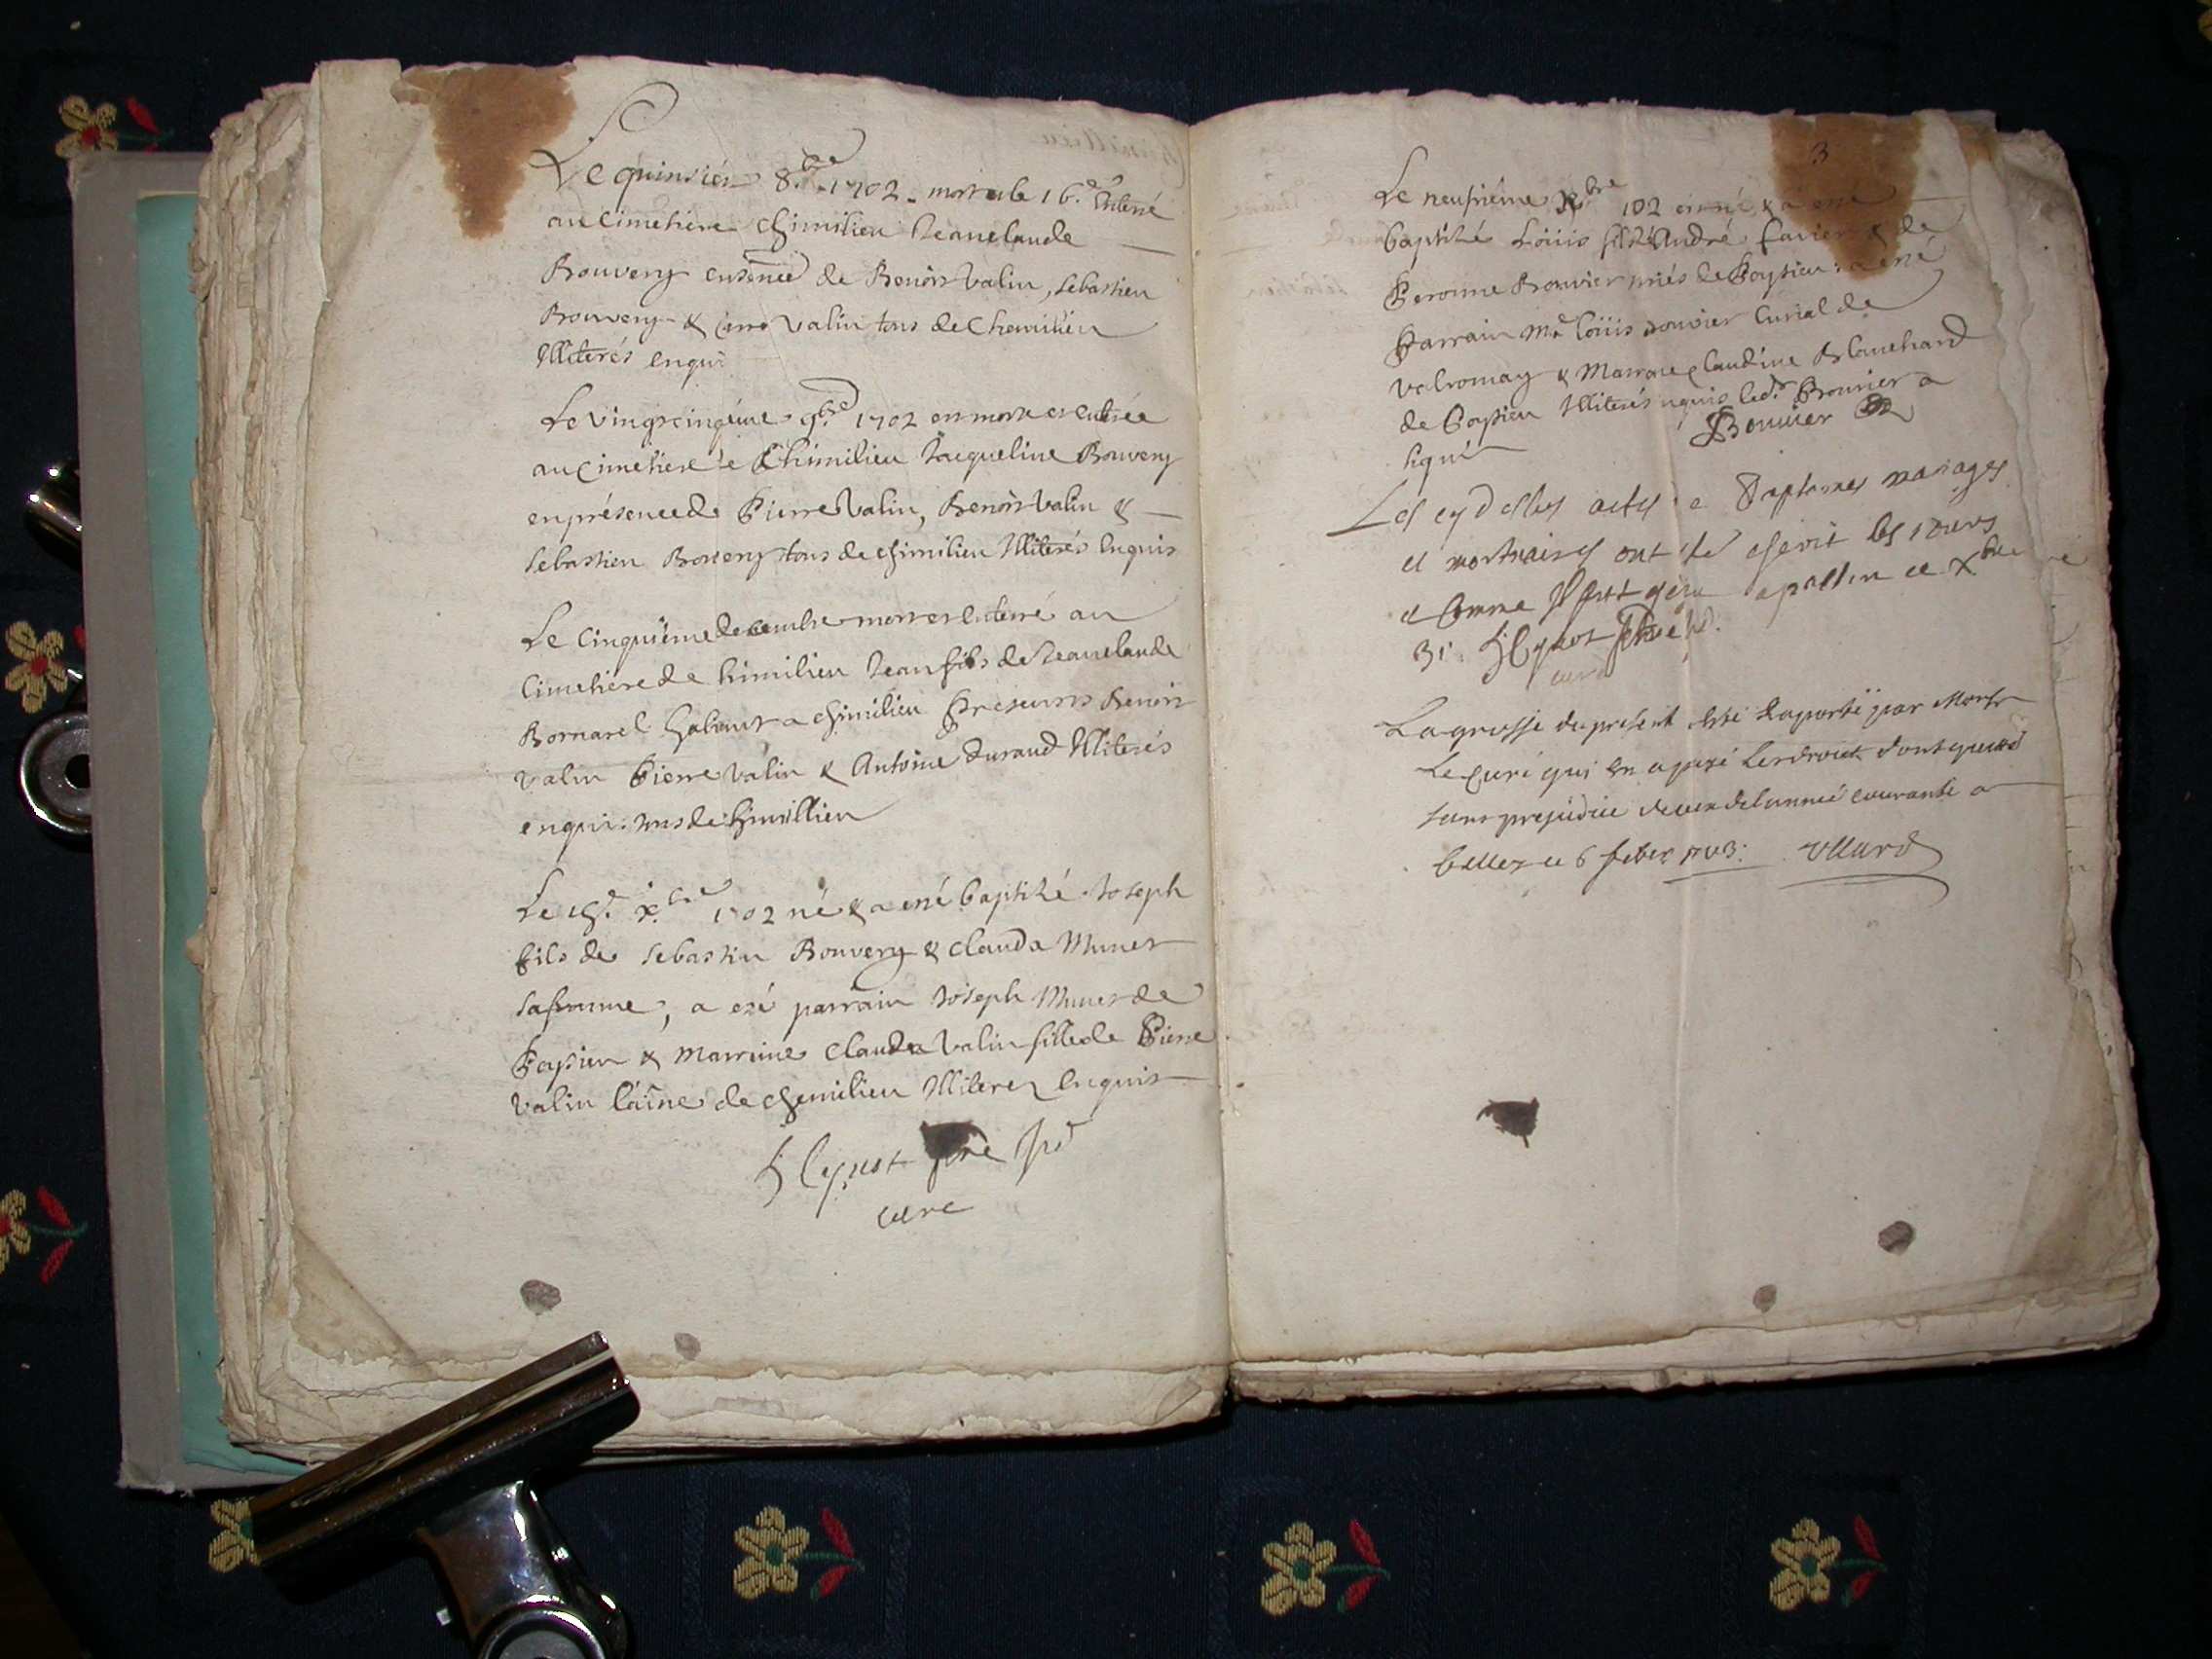 Le quinsiém 8.bre 1702. mort et le 16.e Enterré
au Cimetiére Chimilieu Jeanclaude
Bouvery de Benoit Valin, Sebastien
Bouvery & Valin tous de Chemilieu
Illiterés enquis
Le vingtcinqéme 9bre 1702 est morte et entrée
au Cimetiere de Chimilieu Jacqueline Bouvery
en présence de Pierre Valin, Benoit Valin &
Sebastien Bouvery tous de Chimilieu Illiterés Enquis
Le Cinquiéme decembre mort et Enterré au
Cimetiére de himilieu Jean fils de Jeanclaude
Bornarel habant a Chimilieu Présents Benoit
Valin Pierre Valin & Antoine Durand Illiterés
enquis tous de Chimillieu
Le x.bre 1702 né & a eté baptizé Joseph
fils de Sebastien Bouvery & Clauda Munet
sa femme, a eté parrain Joseph Munet de
Peysieu & Marrine Clauda Valin fille de Pierre
Valin l'aine de Chemilieu Illiterez Enquis
cure
3
Le neufiéme Xbre 102 est né & a eté
baptizé Loüis fils d'André Favier & de
Peronne Bouvier mriés de Peysieu a eté
Parrain Mre Loüis Bouvier Curial de
Valromay & Marraine Claudine Blanchard
de Peysieu Illiterés nquis led.t Bouvier a
signé Bouvier
Les cy dessus actes de Baptemes mariages
et mortuaires ont été escrit les jours
et comme il ce Xbre
31.
curé
La grosse du present esté Raporté par Monsr
Le Curé qui en a payé Les droits dont quitté
sans prejudice de ceux de l'année courante a
belley ce 6 feber 1703.